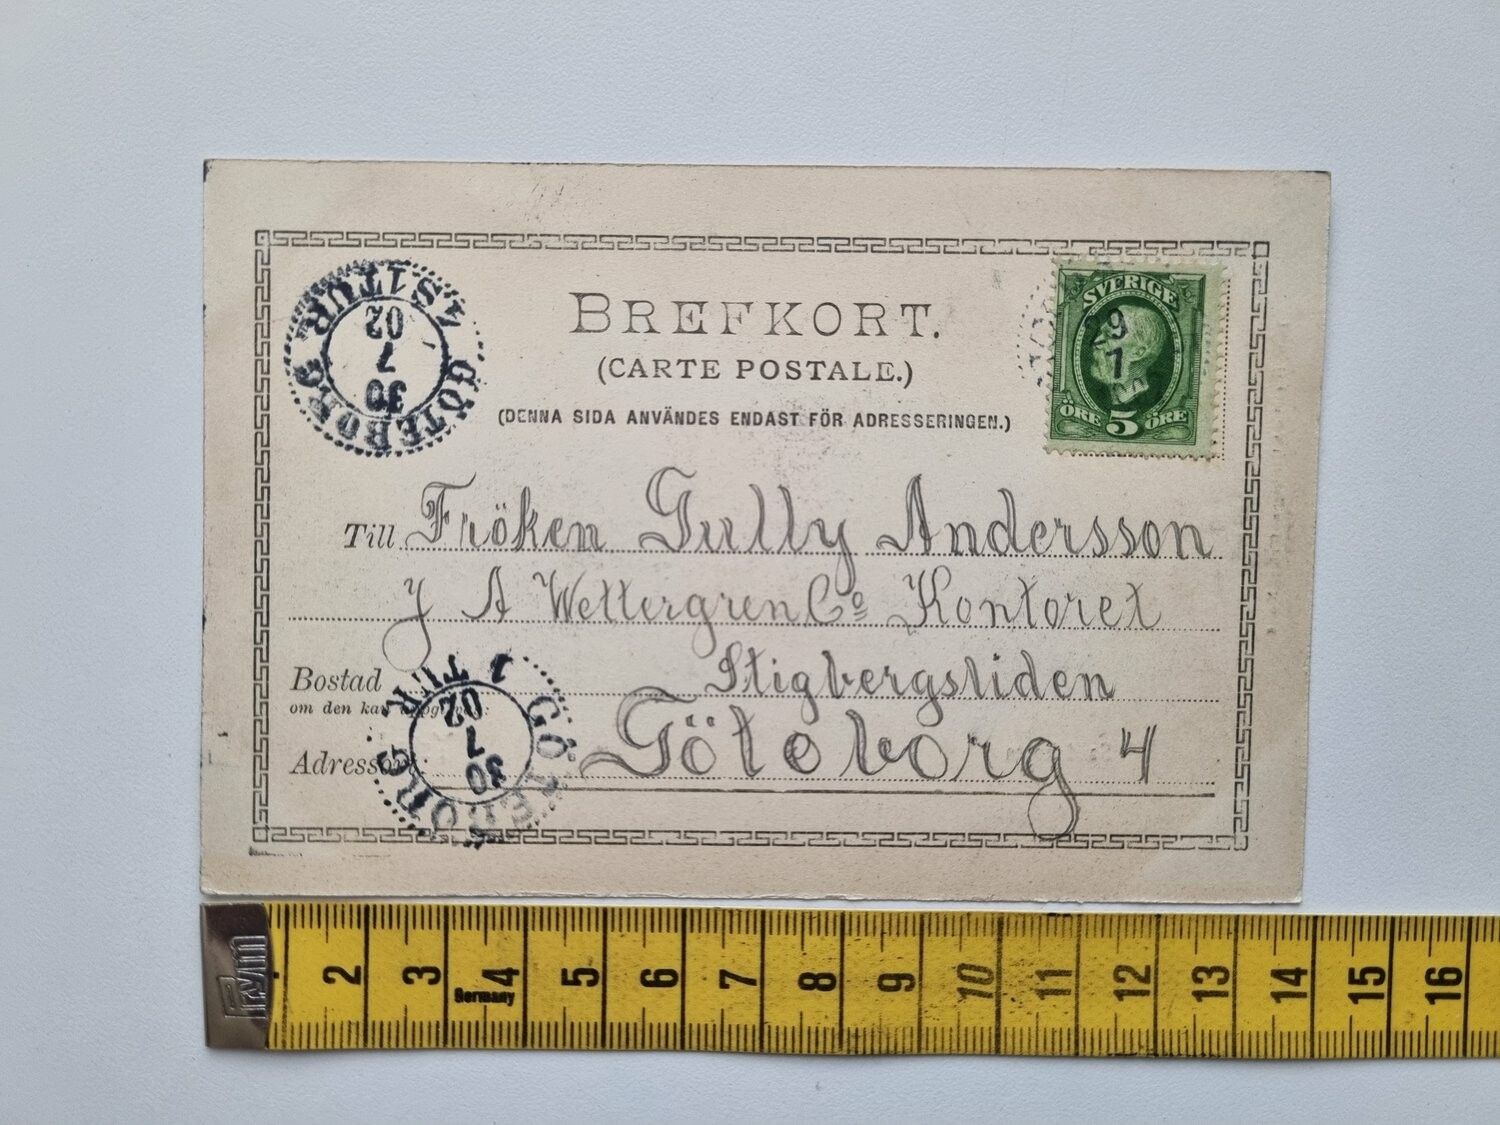 BREFKORT.
(CARTE POSTALE.)
(DENNA SIDA ANVÄNDES ENDAST FÖR ADRESSERINGEN.)
SVERIGE
ÖRE 5 ÖRE
29
7
GÖTEBORG
4.S 1 TUR
30
7
02
Till Fröken Gully Andersson
J A Wettergren Co Kontoret
Bostad Stigbergsliden
om den kan
Adressort Göteborg 4
GÖTEBORG
1 TUR
30
7
02
Prym
2 3 4 5 6 7 8 9 10 11 12 13 14 15 16
Germany